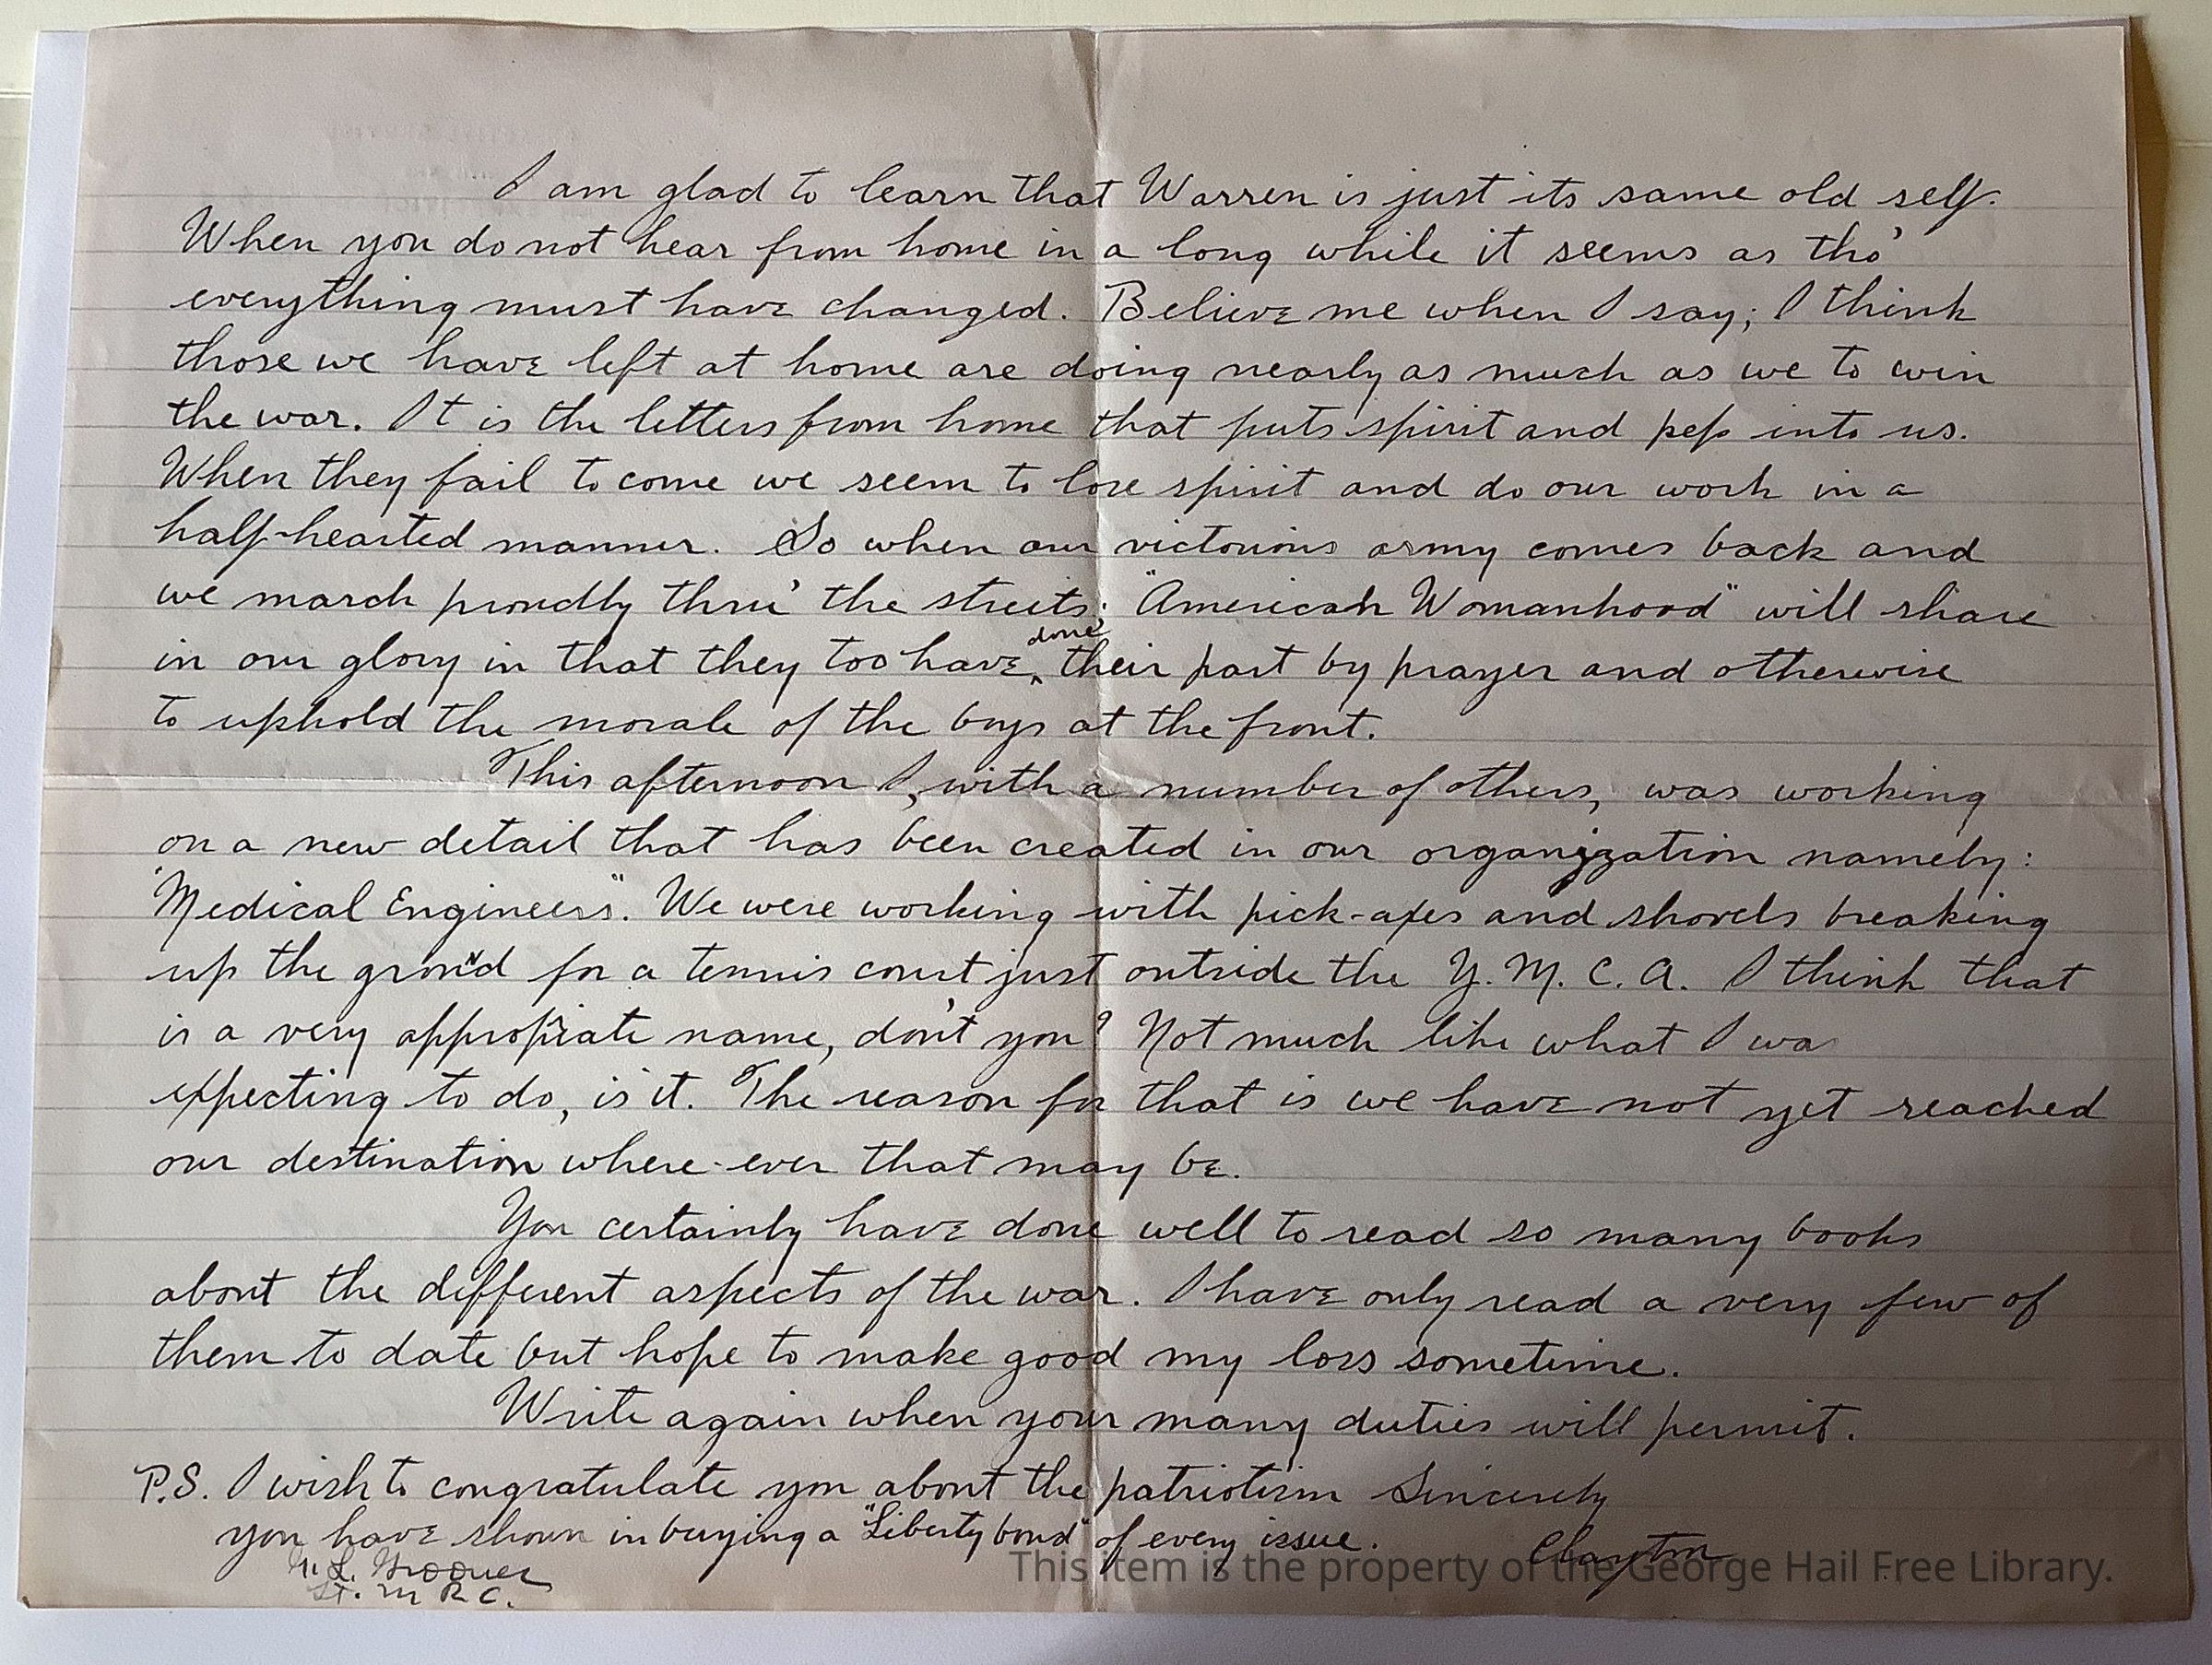 I am glad to learn that Warren is just its same old self.
When you do not hear from home in a long while it seems as tho'
everything must have changed. Believe me when I say; I think
those we have left at home are doing nearly as much as we to win
the war. It is the letters from home that puts spirit and pep into us.
When they fail to come we seem to lose spirit and do our work in a
half-hearted manner. So when our victorious army comes back and
we march proudly thru' the streets: "American Womanhood" will share
in our glory in that they too have done their part by prayer and otherwise
to uphold the morale of the boys at the front.
This afternoon I, with a number of others, was working
on a new detail that has been created in our organization namely:
"Medical Engineers". We were working with pick-axes and shovels breaking
up the ground for a tennis court just outside the Y. M. C. A. I think that
is a very appropriate name, don't you? Not much like what I wa
expecting to do, is it. The reason for that is we have not yet reached
our destination where-ever that may be.
You certainly have done well to read so many books
about the different aspects of the war. I have only read a very few of
them to date but hope to make good my loss sometime.
Write again when your many duties will permit.
P.S. I wish to congratulate you about the patriotism Sincerely
you have shown in buying a "Liberty bond" of every issue. Clayton
Lt. M R C.
This item is the property of the George Hail Free Library.